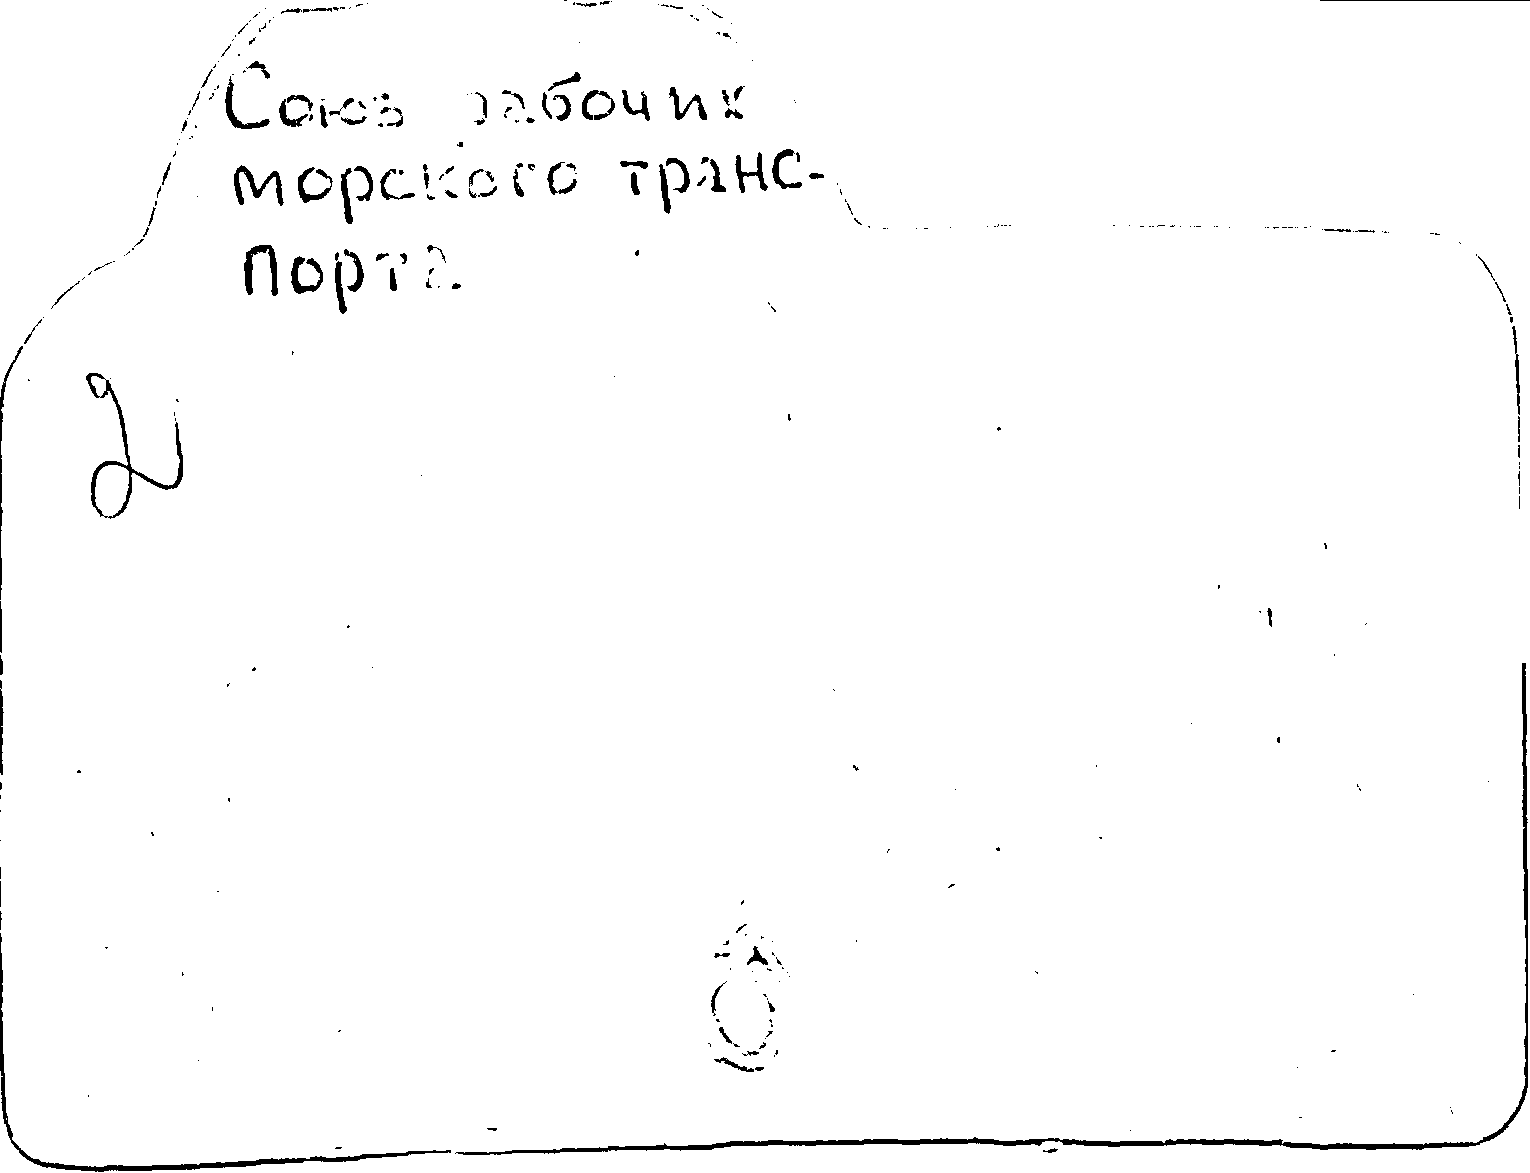 Союз рабочих
морского транс-
порта.
2